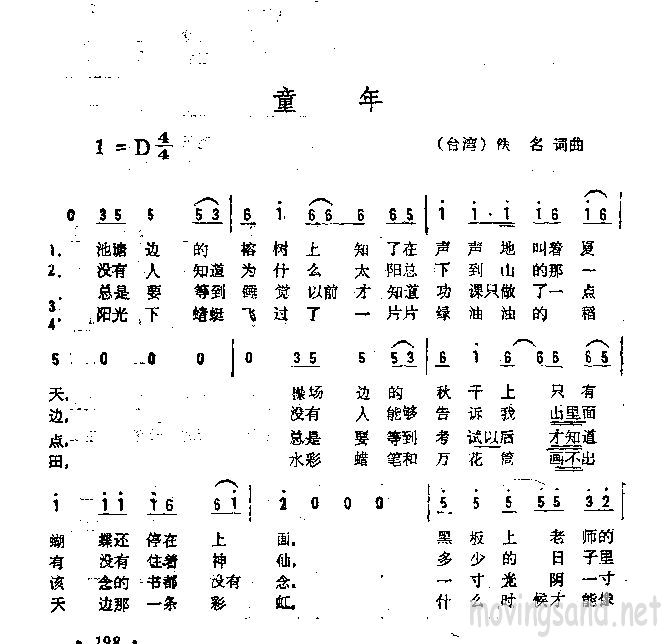 童 年
1 = D 4/4
（台湾）佚 名 词曲
0 35 5 53 | 6 1 66 6 56 | 6 1·1 16 16 |
1. 池塘边的 榕树上 知了在声声地叫着夏
2. 没有人知道为什么 太阳总下到山的那一
3. 总是要等到睡觉以前才知道功课只做了一点
4. 阳光下蜻蜓飞过了一片片绿油油的稻
5 0 0 0 | 0 35 5 53 | 6 1 6 6 65 |
天， 操场边的 秋千上 只有
边， 没有人能够 告诉我 山里面
点， 总是要等到 考试以后 才知道
田， 水彩蜡笔和 万花筒 画不出
1 11 16 61 | 2 0 0 0 | 5 5 5 55 32 |
蝴 蝶还停在上 面， 黑板上老师的
有 没有住着神 仙， 多少的日子里
该 念的书都没有 念， 一寸光阴一寸
天 边那一条彩 虹， 什么时候才能像
• 198 •
movingsand.net